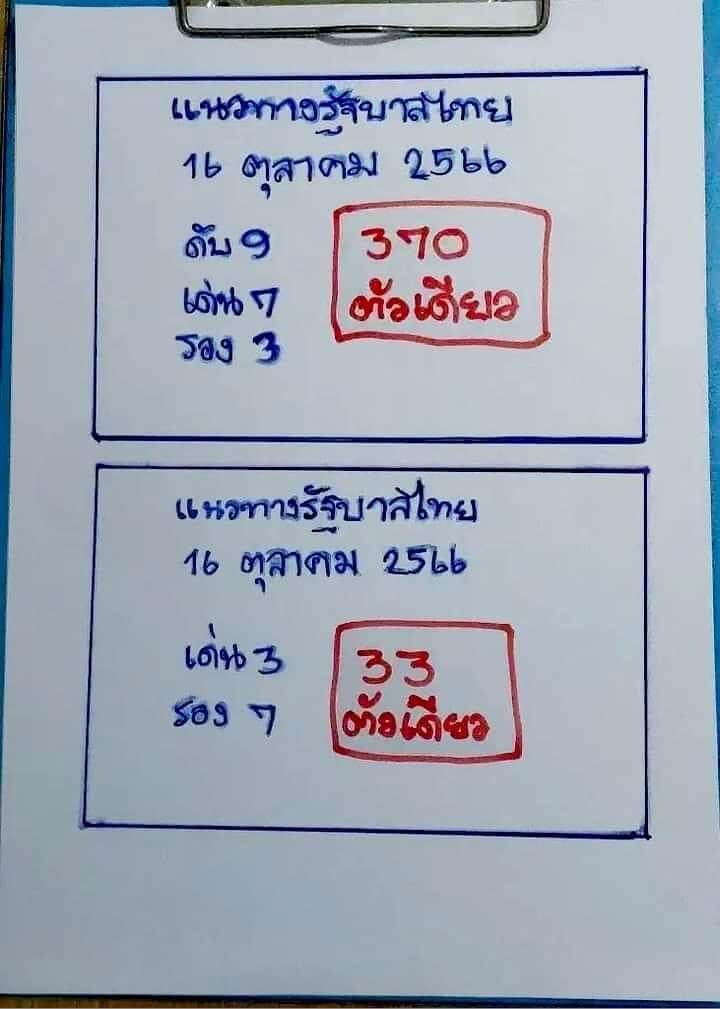 แนวทางรัฐบาลไทย
16 ตุลาคม 2566
ดับ 9
370
เด่น 7
ตัวเดียว
รอง 3
แนวทางรัฐบาลไทย
16 ตุลาคม 2566
เด่น 3
33
รอง 7
ตัวเดียว